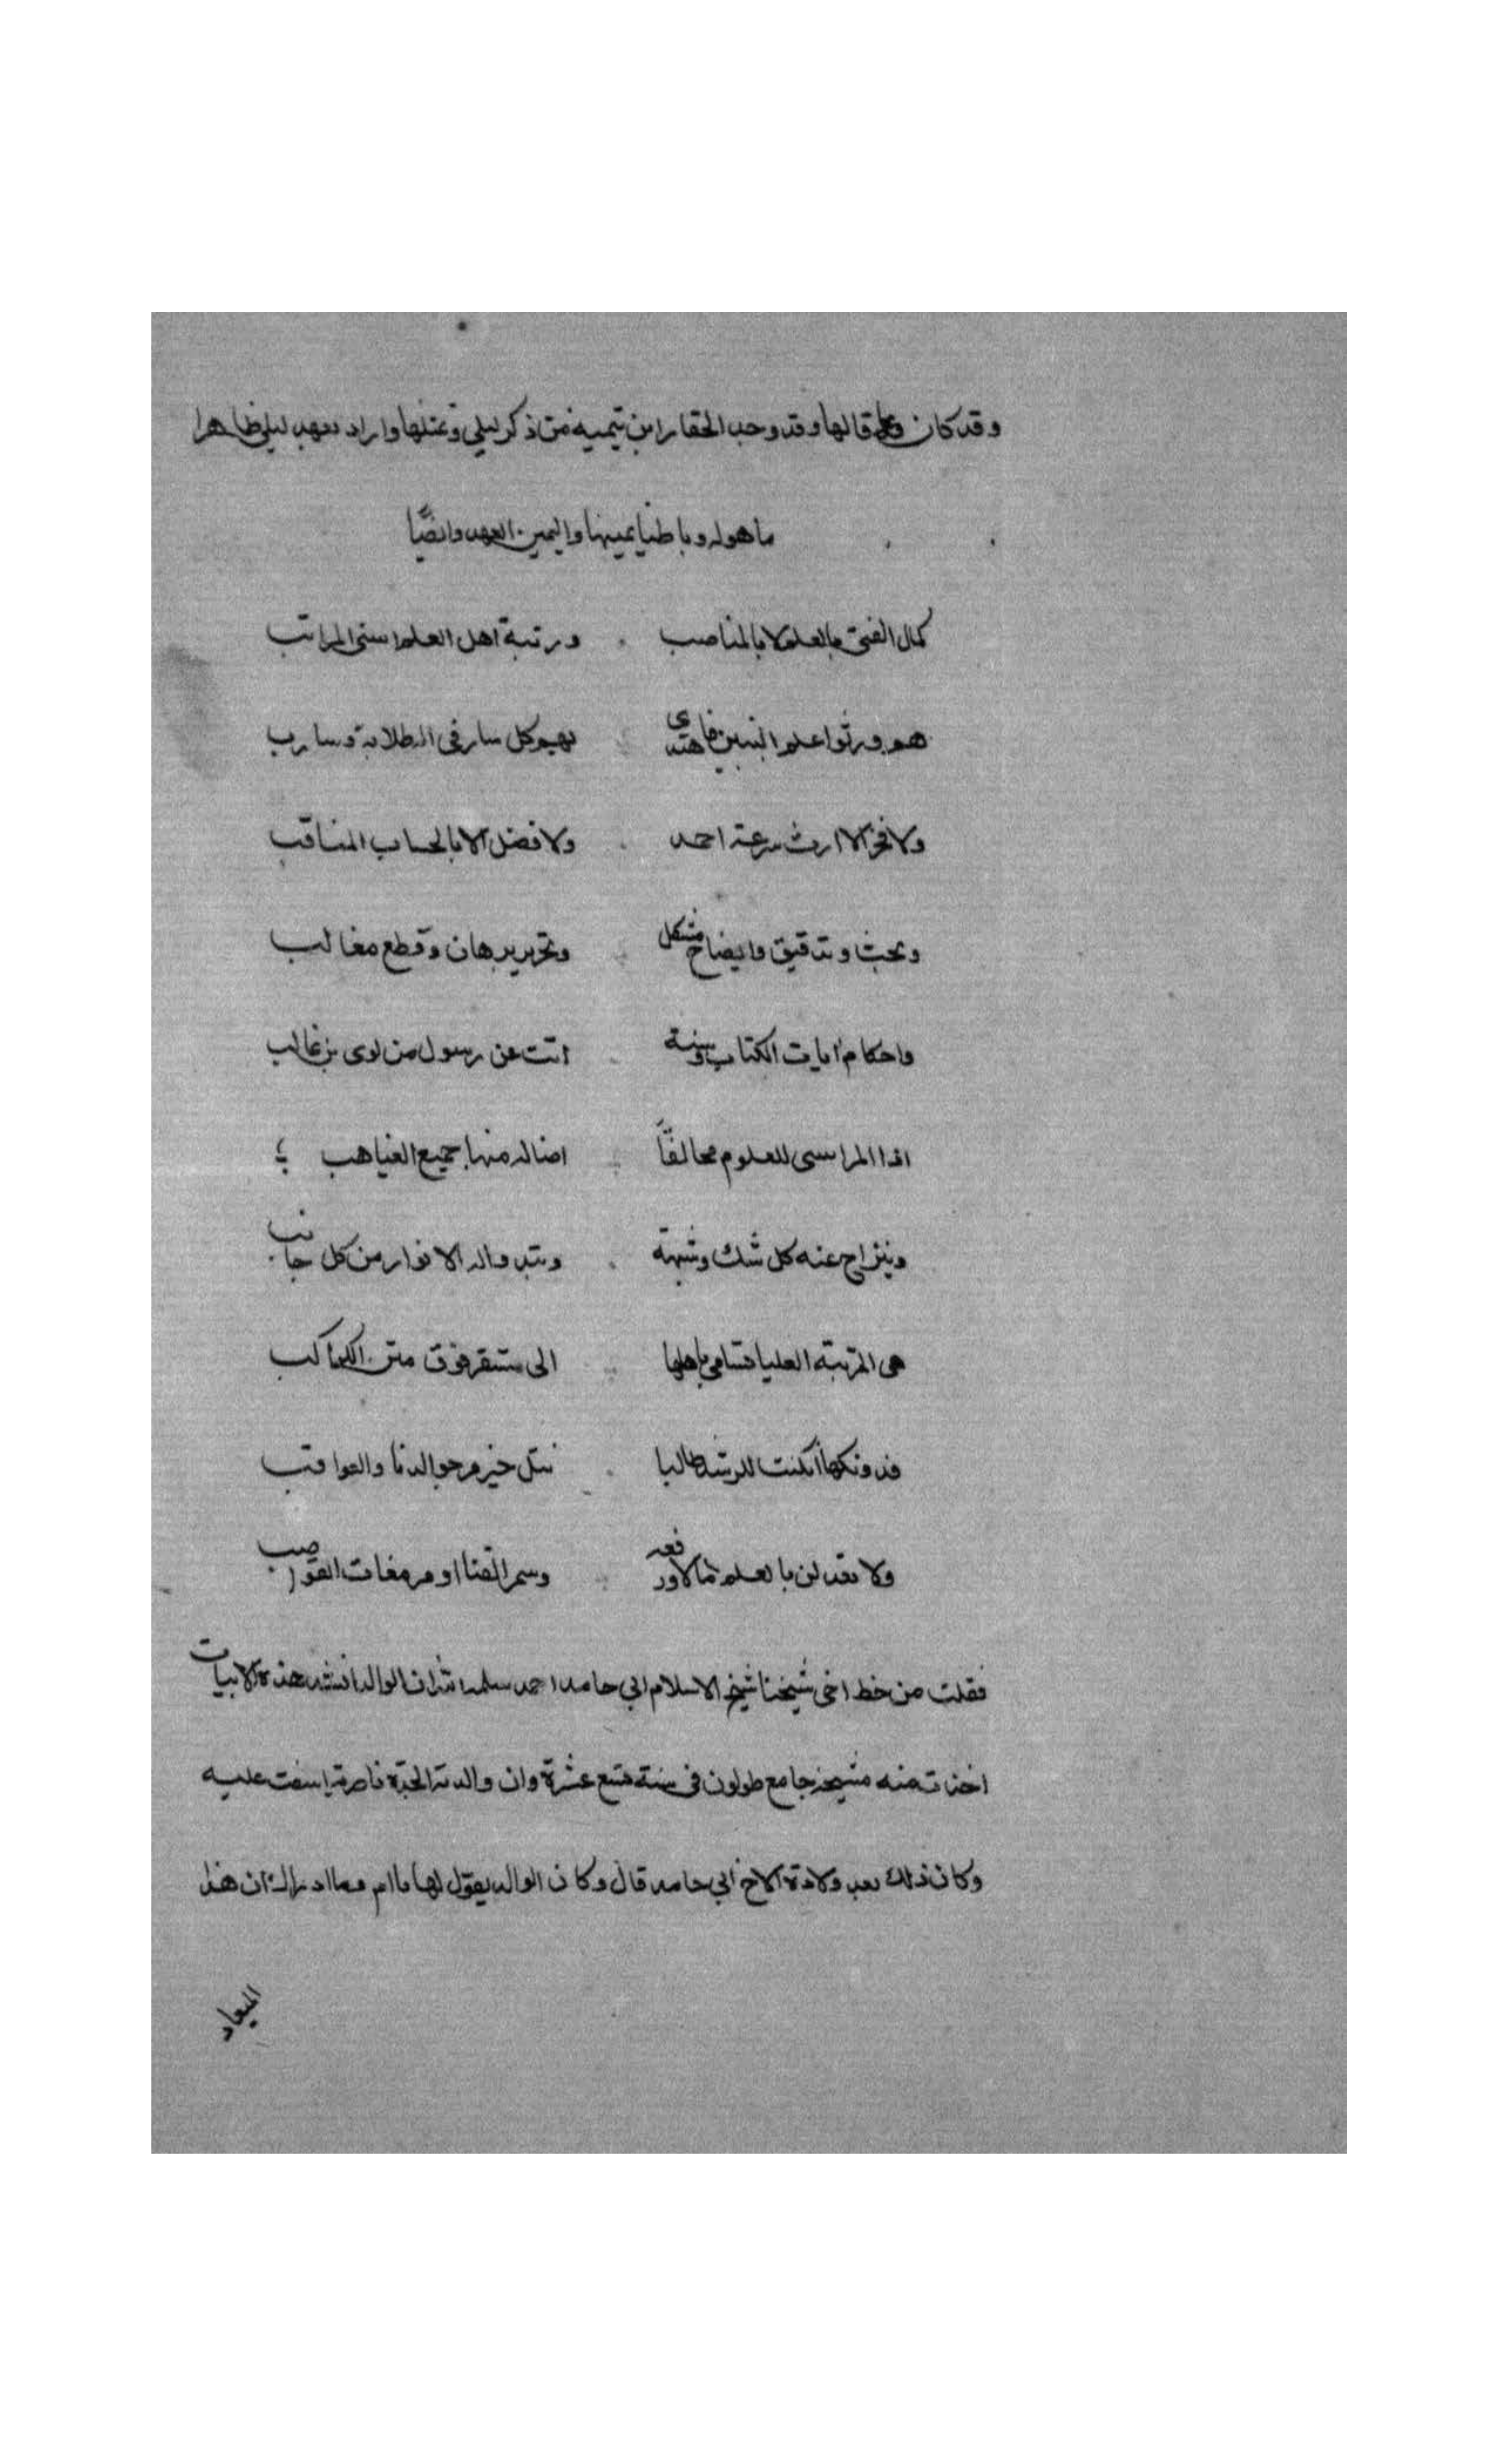 وقد كان قالها وقد وجد الحقار ابن تيميه فمن ذكر ليلى وعنلها واراد بعهد ليلى ظاهرا
ما هوله وباطنا يمينها واليمين العهد وايضًا
كمال الفتى بالعلم لا بالمناصب ورتبة اهل العلم اسنى المراتب
هم ورثوا علم النبين فاهتدى بهم كل سار في الظلام وسارب
ولا فخر الا ارث شرعة احمد ولا فضل الا بالحساب المناقب
وبحث وتدقيق وايضاح مشكل وتحرير برهان وقطع مغالب
واحكام ايات الكتاب وسنة اتت عن رسول من لوى بن غالب
اذا المر امسى للعلوم محالفًا اضا له منها جميع الغياهب
وينزاح عنه كل شك وشبهة وتبدو له الانوار من كل جانب
هى الرتبة العليا تسامى باهلها الى مستقر فوق متن الكواكب
فدونكها ان كنت للرشد طالبا تنل خير مرجو الدنا والعواقب
ولا تعدلن بالعلم مالا ورفعه وسمر القنا او مرهفات القواصب
فقلت من خط اخى شيخنا شيخ الاسلام ابي حامد احمد سلمه الله ان الوالد انشد هذه الابيات
اخذت منه مشيخة جامع طولون فى سنة تسع عشرة وان والدته الجدة ناصرية اسفت عليه
وكان ذلك بعد ولادة الاخ ابي حامد قال وكان الوالد يقول لها ياام وما ادراك ان هذا
الميعاد